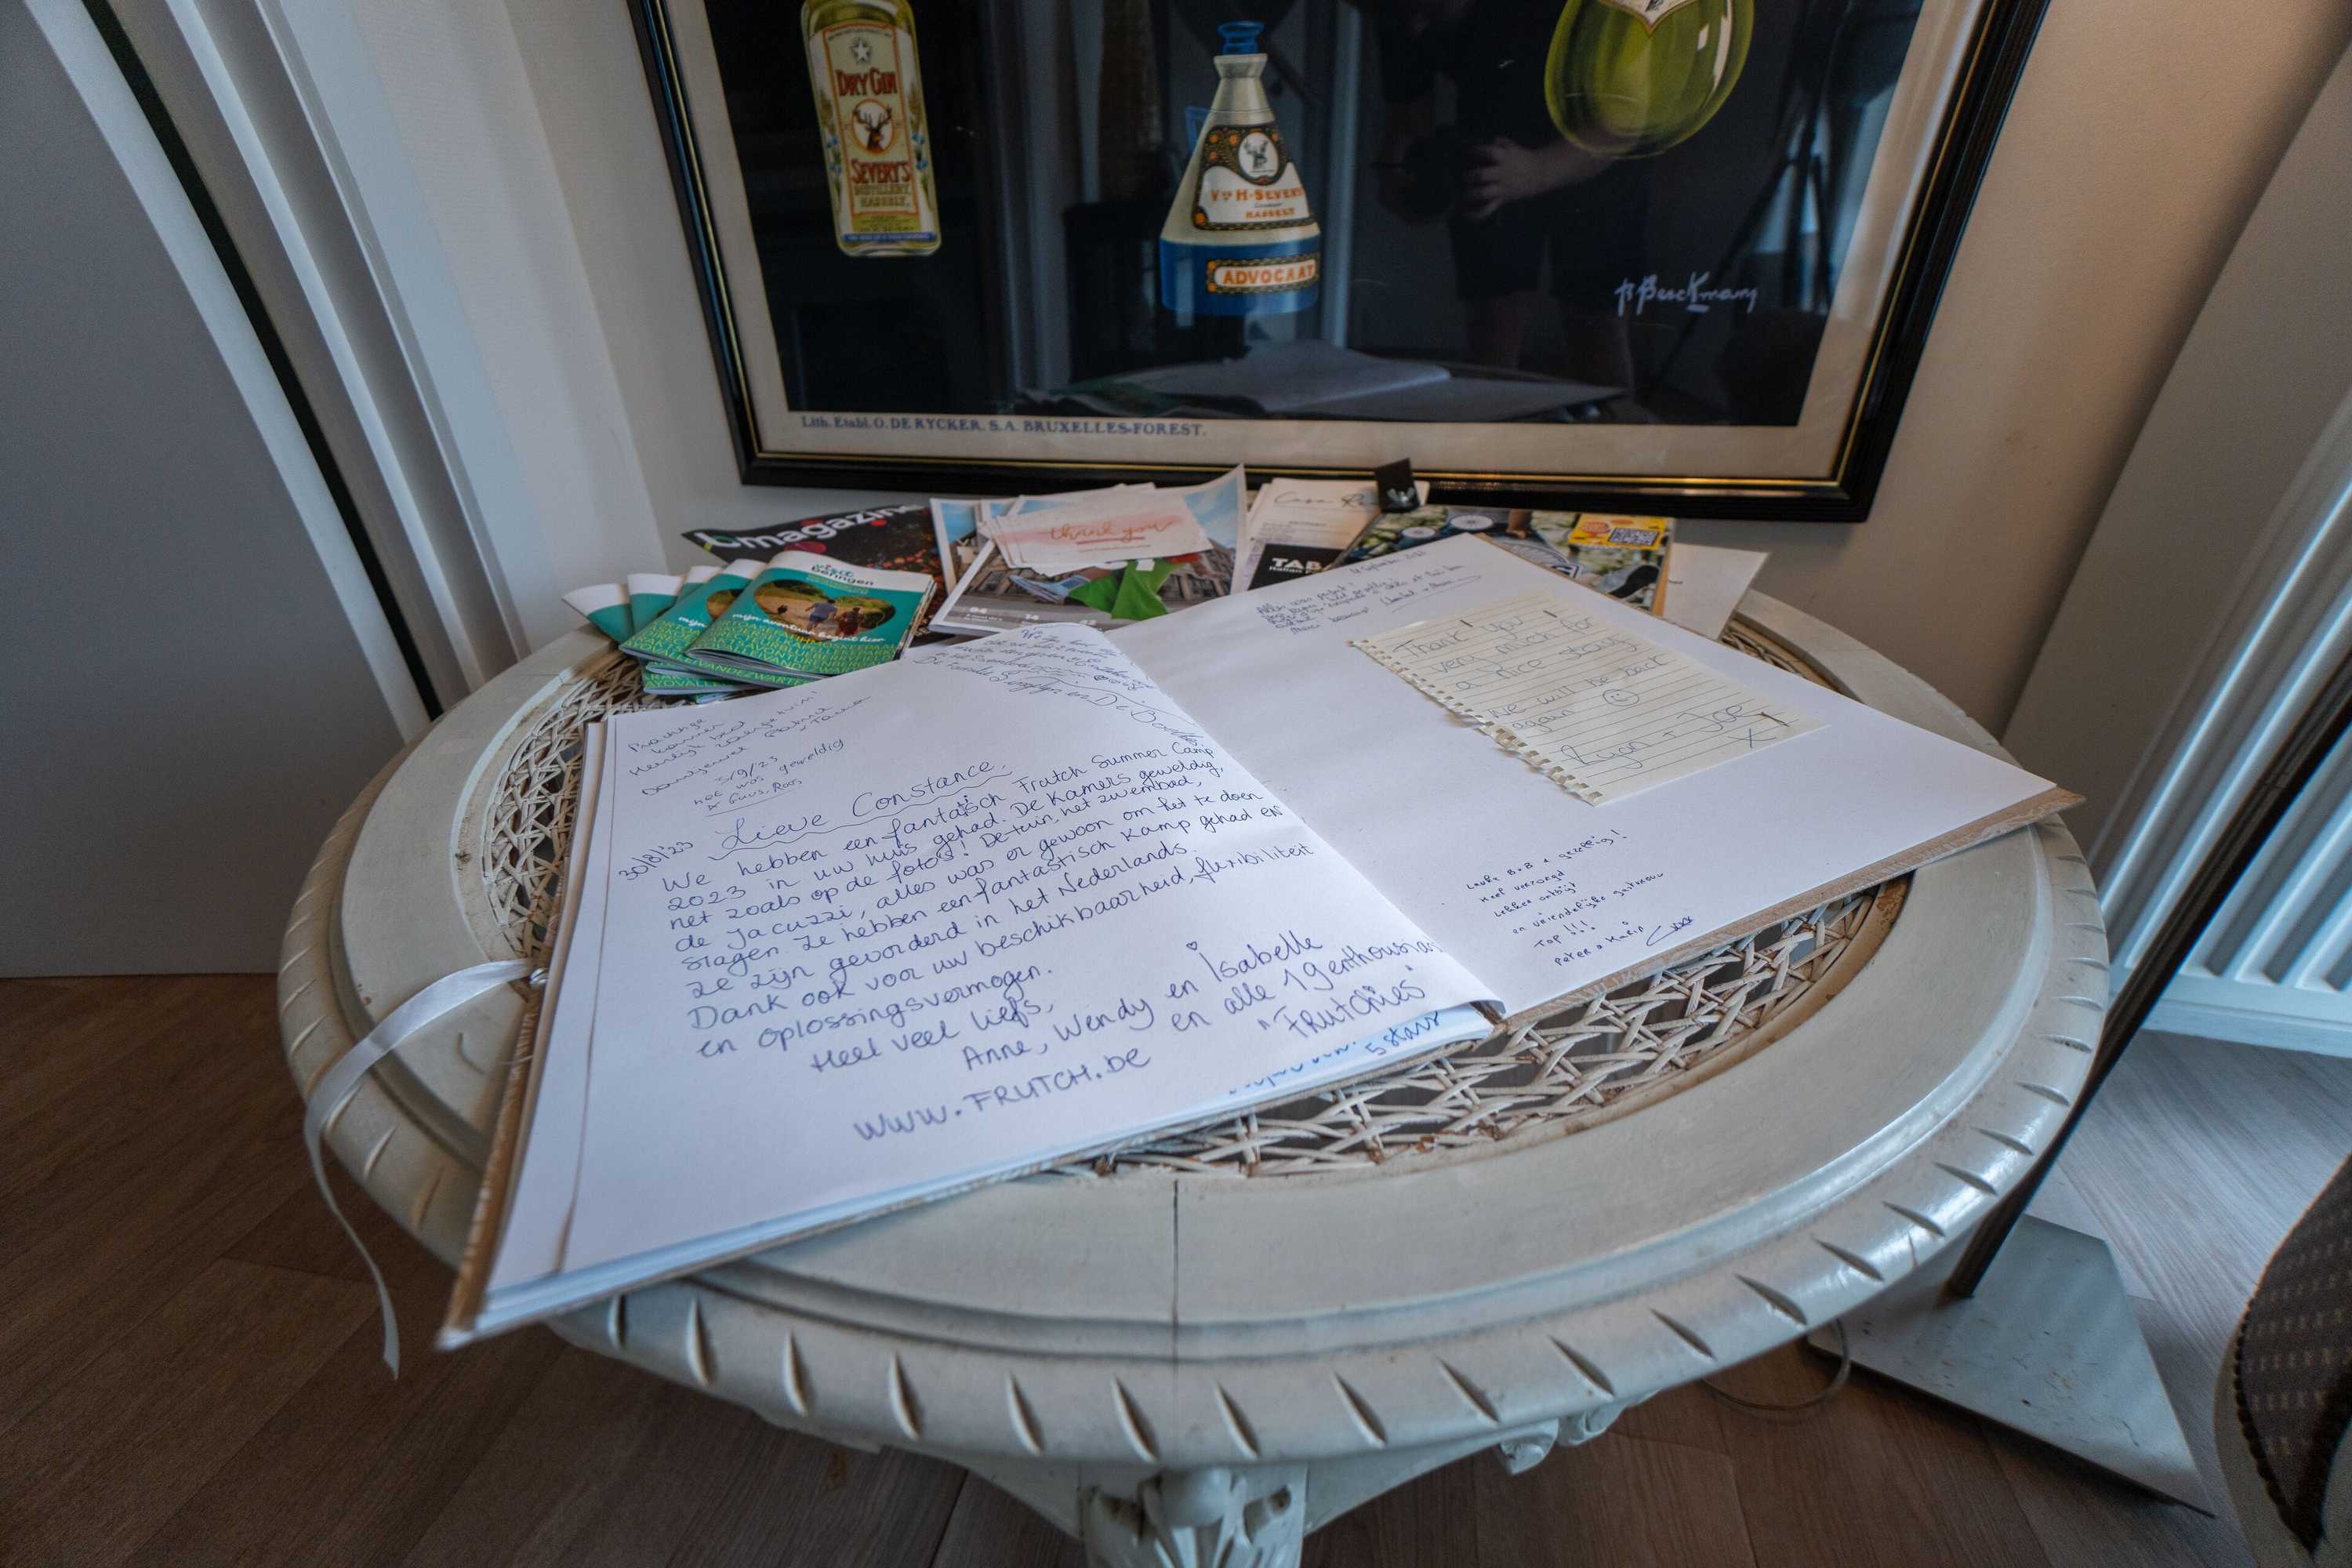 DRY GIN
SEVERY'S
DISTILLERY
HASSELT.
Vve H. SEVERY
HASSELT
ADVOCAAT
Lith. Etabl. O. DE RYCKER. S.A. BRUXELLES-FOREST.
bmagazine
thank you
TAB
visit
beringen
mijn avontuur begint hier
Prachtige
kamer
Heerlijk bed
5/9/23
het was geweldig
Guus, Roos
30/8/23
Lieve Constance,
We hebben een fantastisch Frutch Summer Camp
2023 in uw huis gehad. De kamers geweldig,
net zoals op de foto's! De tuin, het zwembad,
de jacuzzi, alles was er gewoon om het te doen
slagen. Ze hebben een fantastisch kamp gehad en
ze zijn gevorderd in het Nederlands.
Dank ook voor uw beschikbaarheid, flexibiliteit
en oplossingsvermogen.
Heel veel liefs,
Anne, Wendy en Isabelle
en alle 19 enthousian
"Frutchies"
WWW.FRUTCH.BE
5 stars
Thank you
very much for
a nice stay
We will be back
again
Ryan + Joe
X
Leuke B&B + gezellig!
Heel verzorgd
Lekker ontbijt
en vriendelijke gastvrouw
Top !!!
Peter & Karin